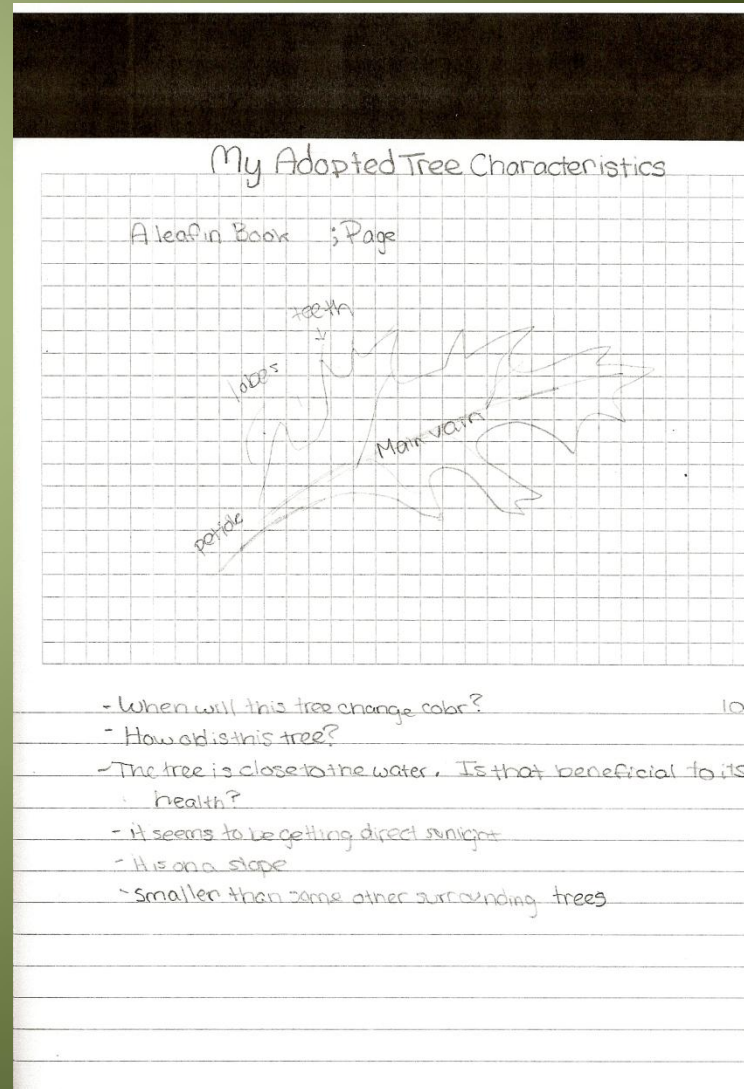 My Adopted Tree Characteristics
A leaf in Book ; Page
teeth
lobes
Main vain
petiole
- When will this tree change color?
10
- How old is this tree?
- The tree is close to the water. Is that beneficial to its
health?
- it seems to be getting direct sunlight
- It is on a slope
- Smaller than some other surrounding trees